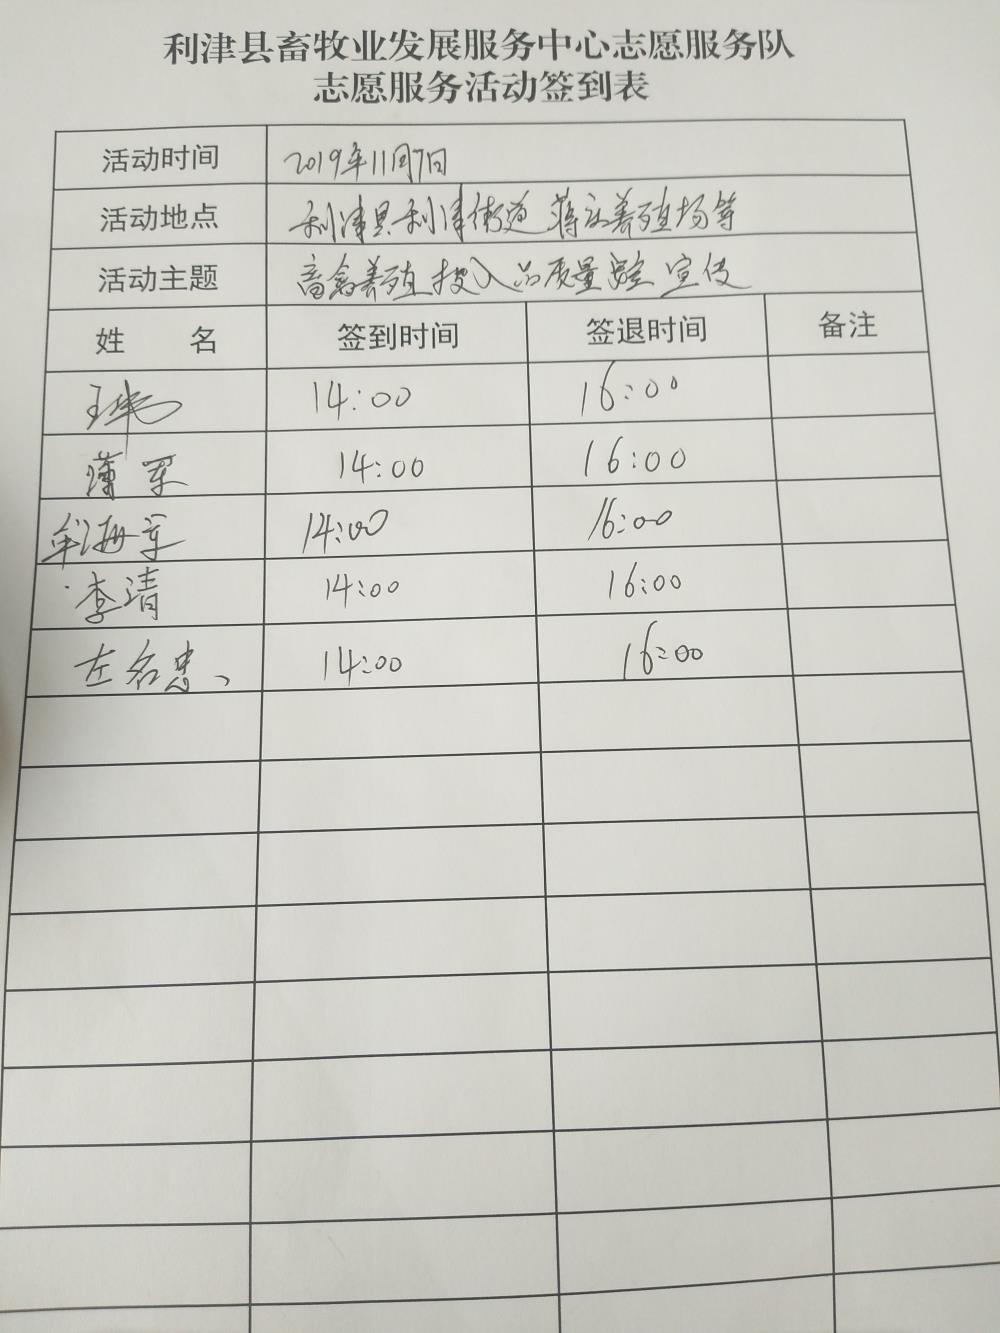 利津县畜牧业发展服务中心志愿服务队
志愿服务活动签到表
活动时间 2019年11月7日
活动地点 利津县利津街道 养殖场等
活动主题 畜禽养殖 投入品质量安全 宣传
姓 名 签到时间 签退时间 备注
王 14:00 16:00
薄军 14:00 16:00
牟海军 14:00 16:00
李清 14:00 16:00
左名忠 14:00 16:00